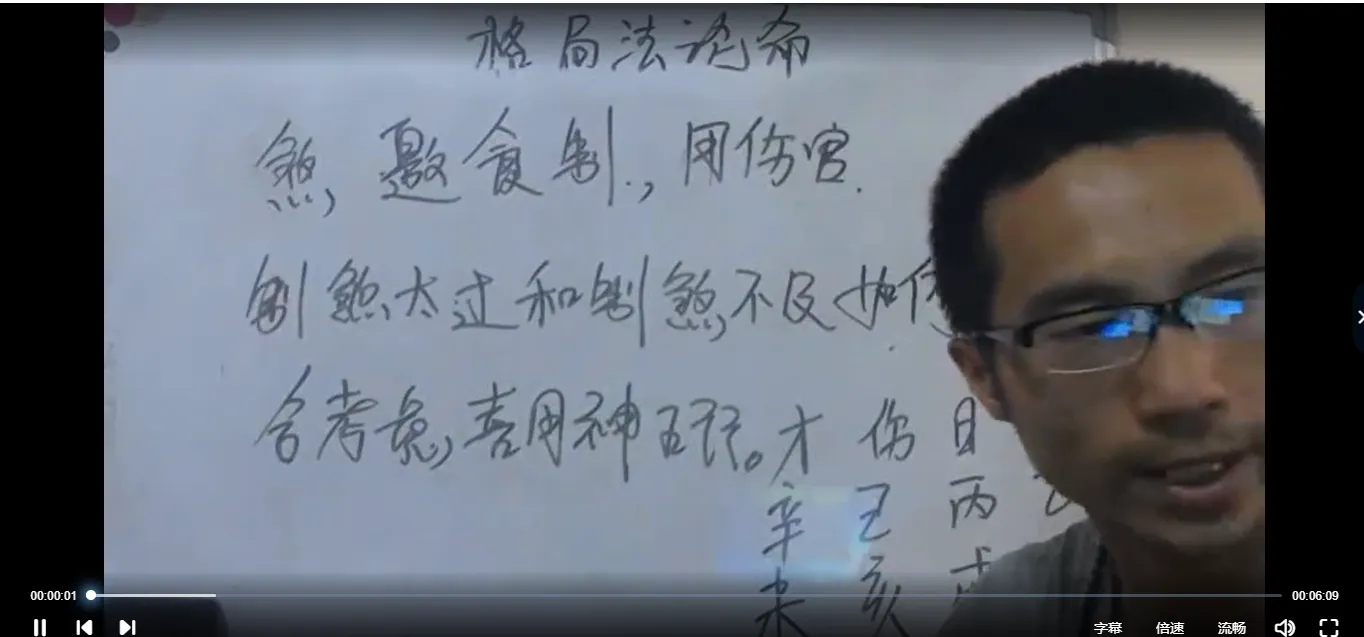 格局法论命
煞，邀食制，用伤官.
制煞太过和制煞不及如何
合考虑，喜用神五行。才 伤 日
辛 己 丙
未 亥 戌
00:00:01
00:06:09
字幕 倍速 流畅